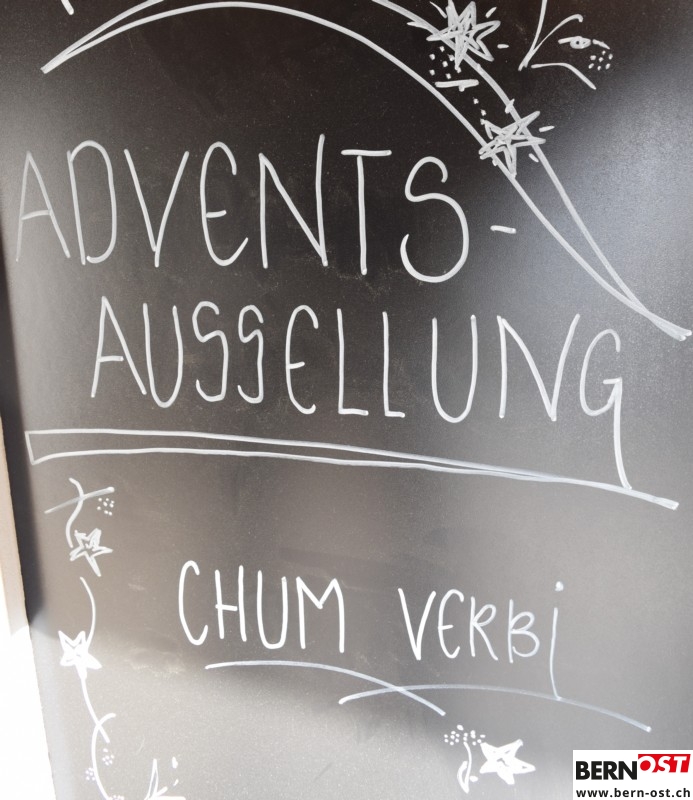 ADVENTS-
AUSSELLUNG
CHUM VERBi
BERNOST
www.bern-ost.ch